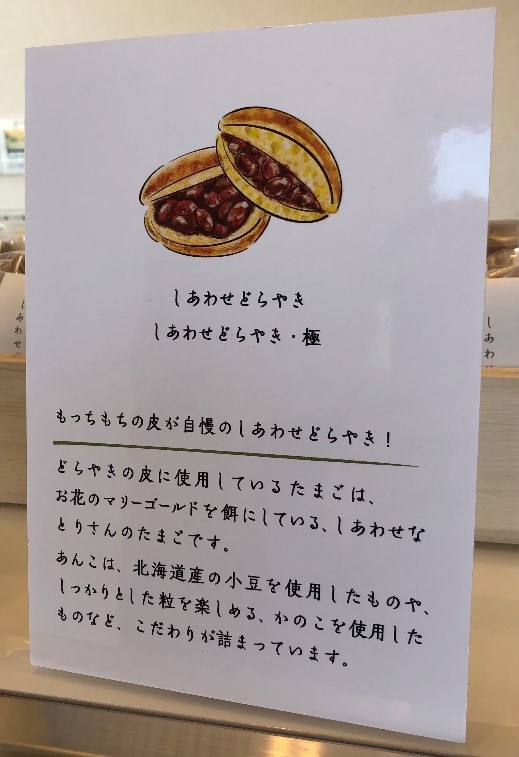 しあわせどらやき
しあわせどらやき・極
もっちもちの皮が自慢のしあわせどらやき！
どらやきの皮に使用しているたまごは、
お花のマリーゴールドを餌にしている、しあわせな
とりさんのたまごです。
あんこは、北海道産の小豆を使用したものや、
しっかりとした粒を楽しめる、かのこを使用した
ものなど、こだわりが詰まっています。
しあわせ
しあわ